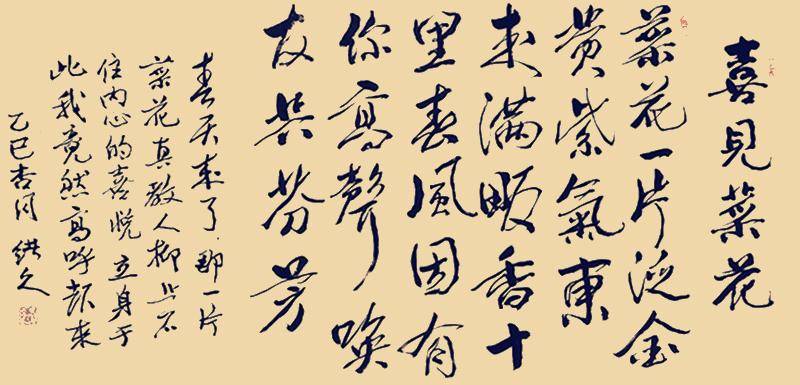 喜見菜花
菜花一片泛金
黄紫氣東
来滿畈香十
里春風因有
你高聲喚
友共芬芳
春天来了那一片
菜花真教人抑止不
住内心的喜悦立身于
此我竟然高呼起来
乙巳杏月